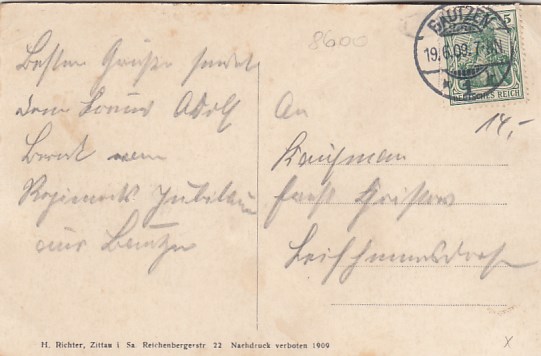 8600
BAUTZEN
19.6.09. 7-8 N
1
5
DEUTSCHES REICH
14,-
Besten Gruß sendet
Adolf
vom
Regiments Jubiläum
aus Bautzen
An
Kaufmann
Gustav
H. Richter, Zittau i Sa. Reichenbergerstr 22 Nachdruck verboten 1909
x